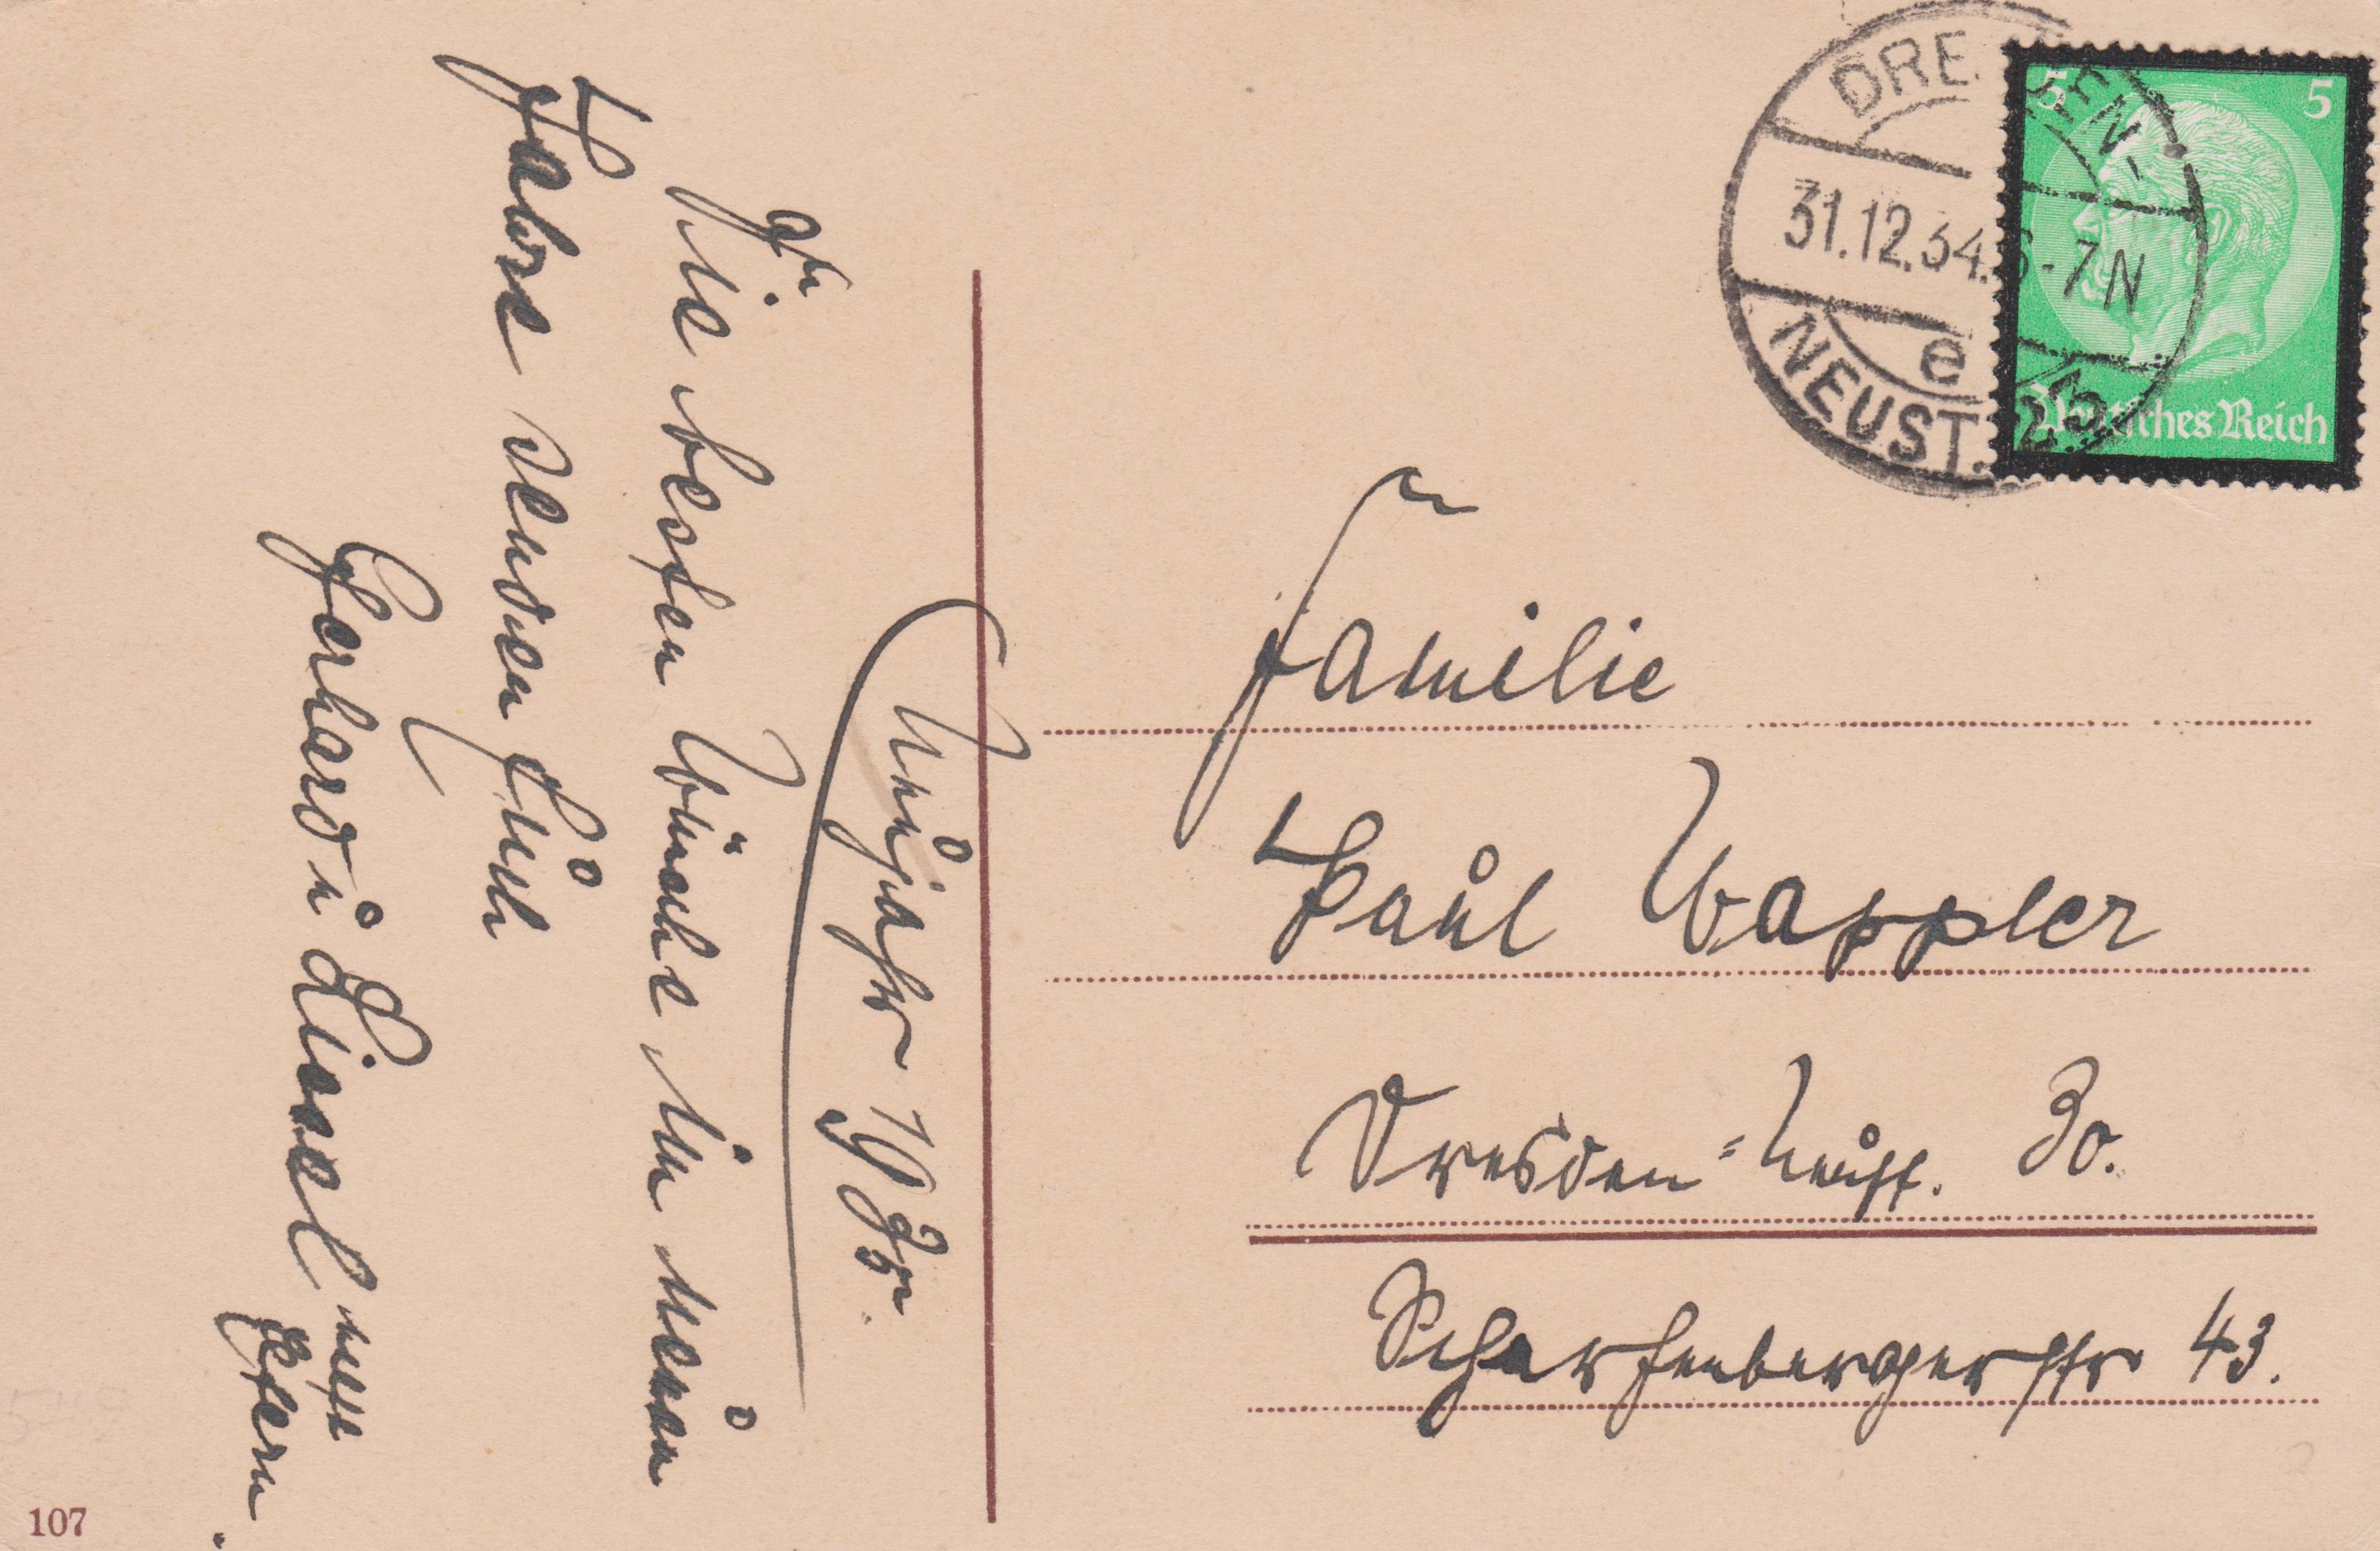 DRESDEN-
31.12.34. 6-7 N
e
NEUST.
5 5
Deutsches Reich
Familie
Paul Wappler
Dresden=Neust. 30.
Scharfenbergerstr 43.
Neujahr 1935.
Die besten Wünsche zum neuen
Jahre senden Euch
Gerhard u. Liesel nebst
Eltern.
107